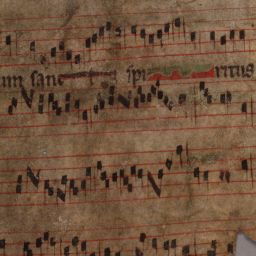 um sanc spiritus